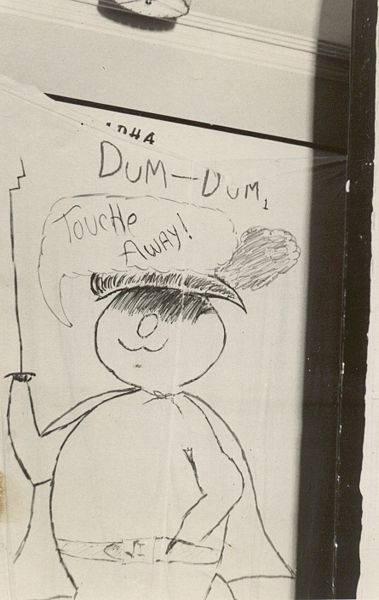 DUM-DUM,
TOUCHe
AWAY!